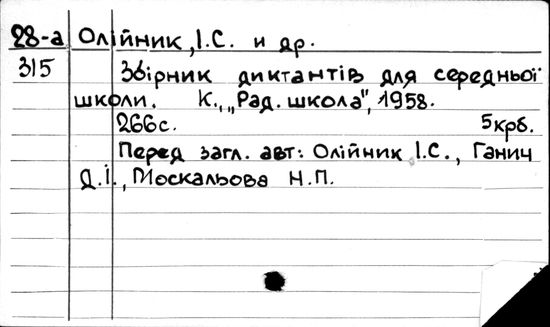 28-а Олійник, І.С. и др.
315 Збірник диктантів для середньої
школи. К., „Рад. школа", 1958.
266с. 5крб.
Перед загл. авт: Олійник І.С., Ганич
Д.І., Москальова Н.П.